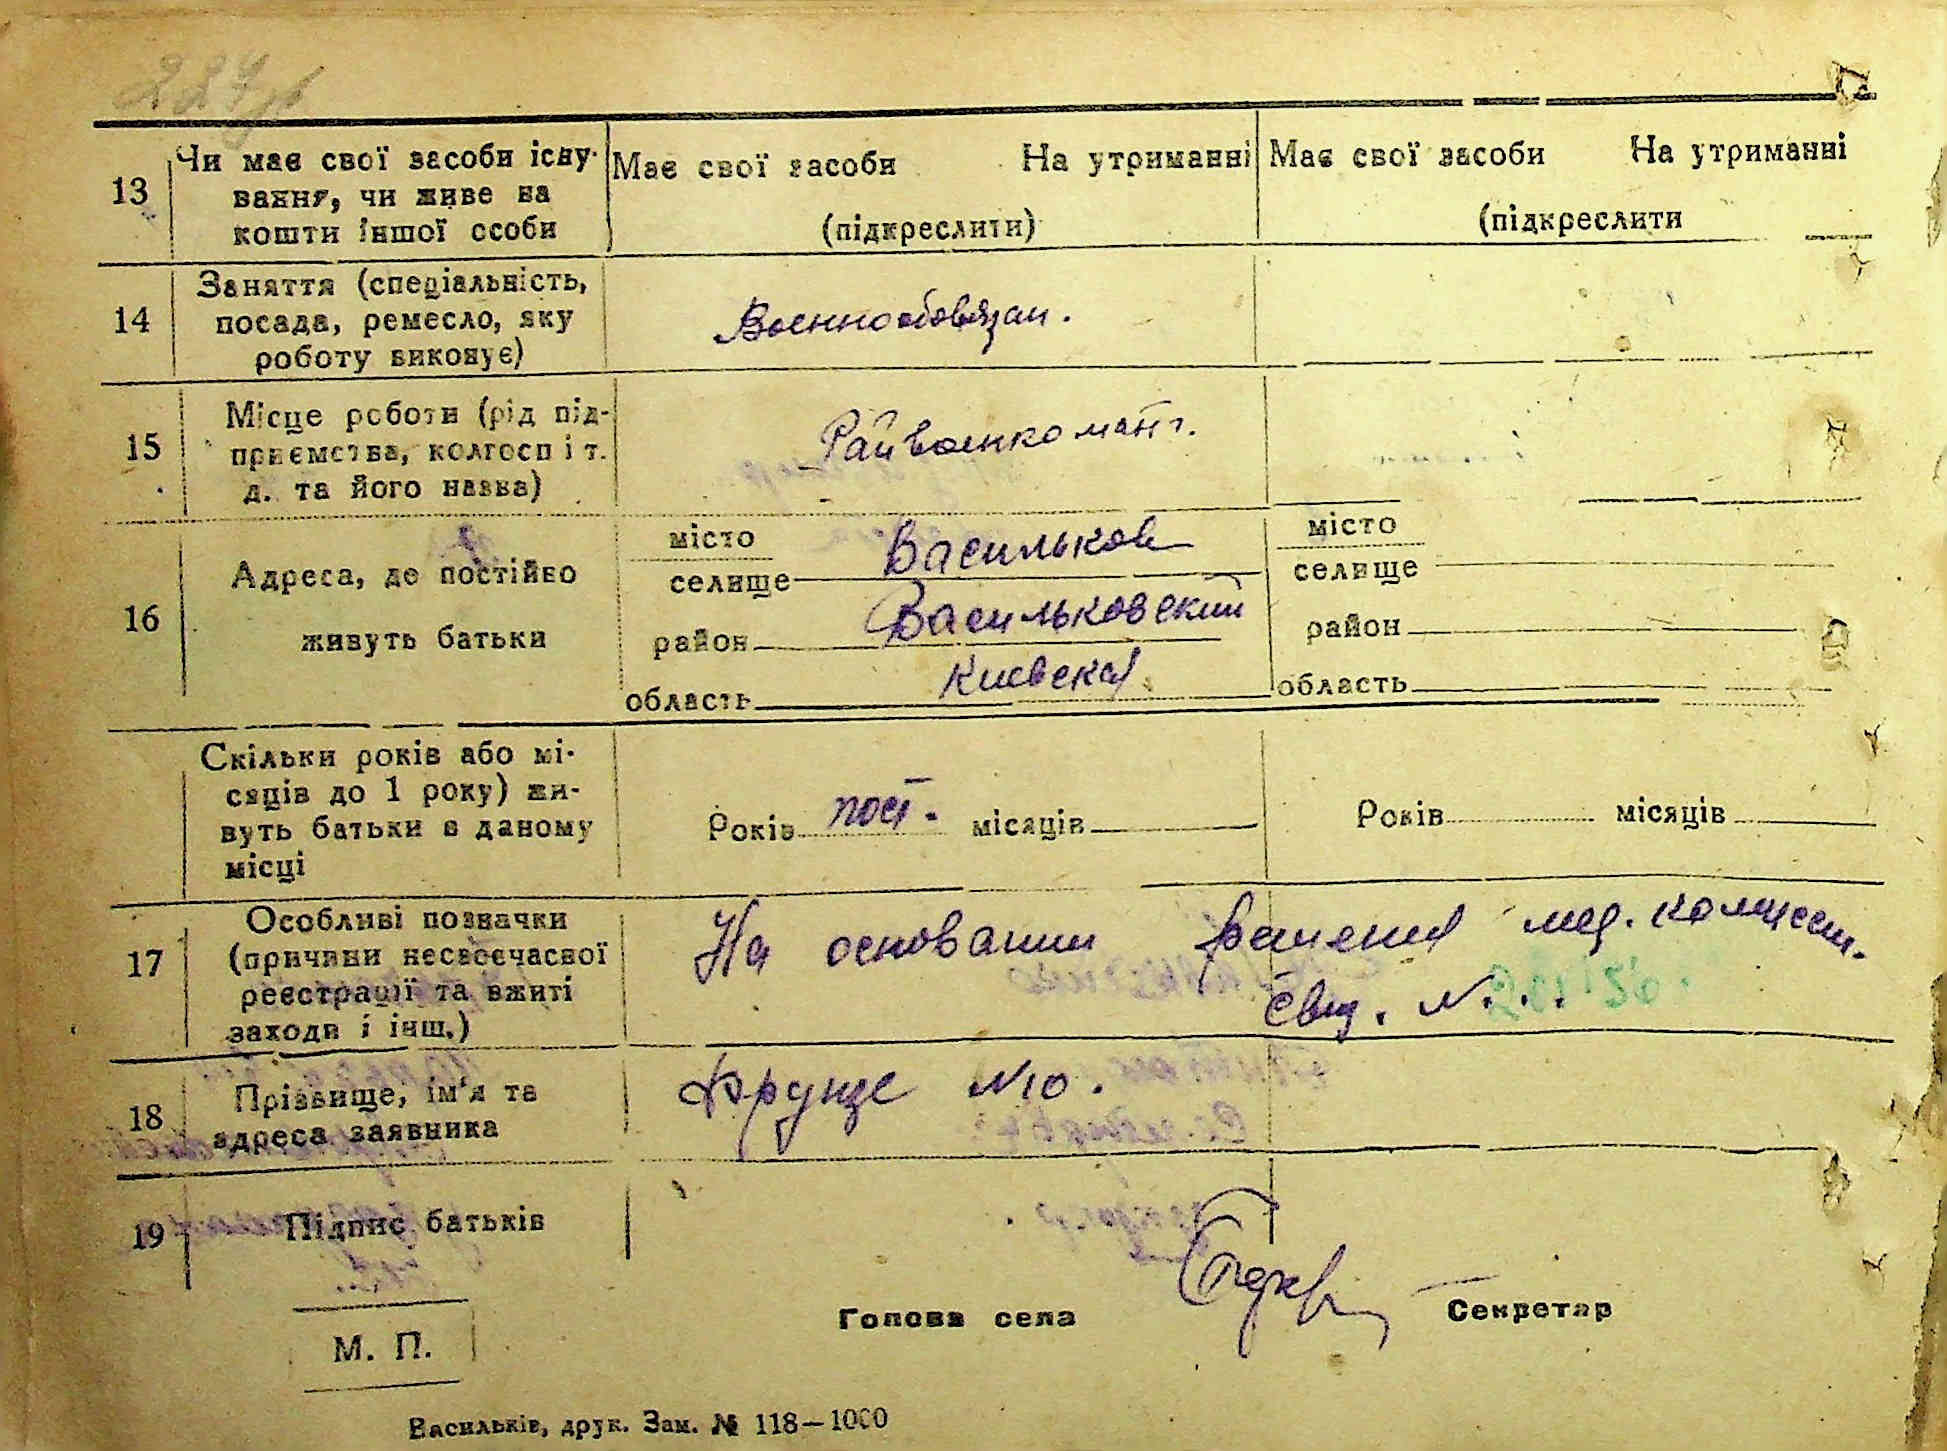 13 Чи має свої засоби існу-
вання, чи живе на
кошти іншої особи
Має свої засоби На утриманні
(підкреслити)
Має свої засоби На утриманні
(підкреслити
14 Заняття (спеціальність,
посада, ремесло, яку
роботу виконує)
Военнообовязан.
15 Місце роботи (рід під-
приємства, колгосп і т.
д. та його назва)
Райвоенкомат.
16 Адреса, де постійно
живуть батьки
місто Васильков
селище
район Васильковский
область Киевская
місто
селище
район
область
Скільки років або мі-
сяців до 1 року) жи-
вуть батьки в даному
місці
Років пост. місяців
Років місяців
17 Особливі позначки
(причини несвоєчасної
реєстрації та вжиті
заходи і інш.)
На основании решения мед. комисси.
Свид. N...
18 Прізвище, ім'я та
адреса заявника
N10.
19 Підпис батьків
Голова села Секретар
М. П.
Васильків, друк. Зам. № 118—1000